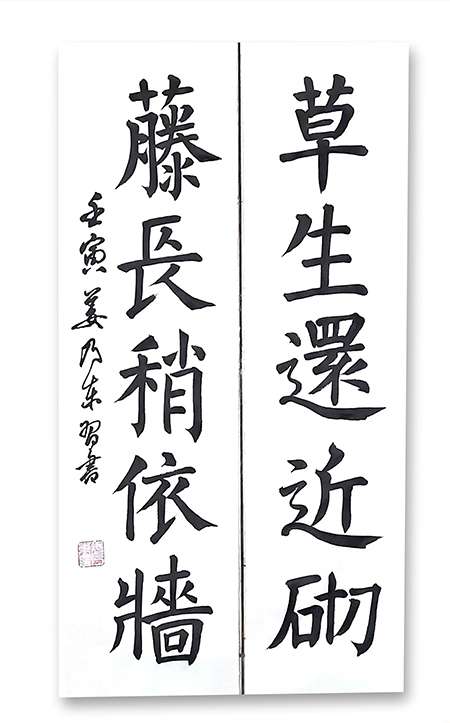 草生還近砌
藤長稍依牆
壬寅姜乃東習書